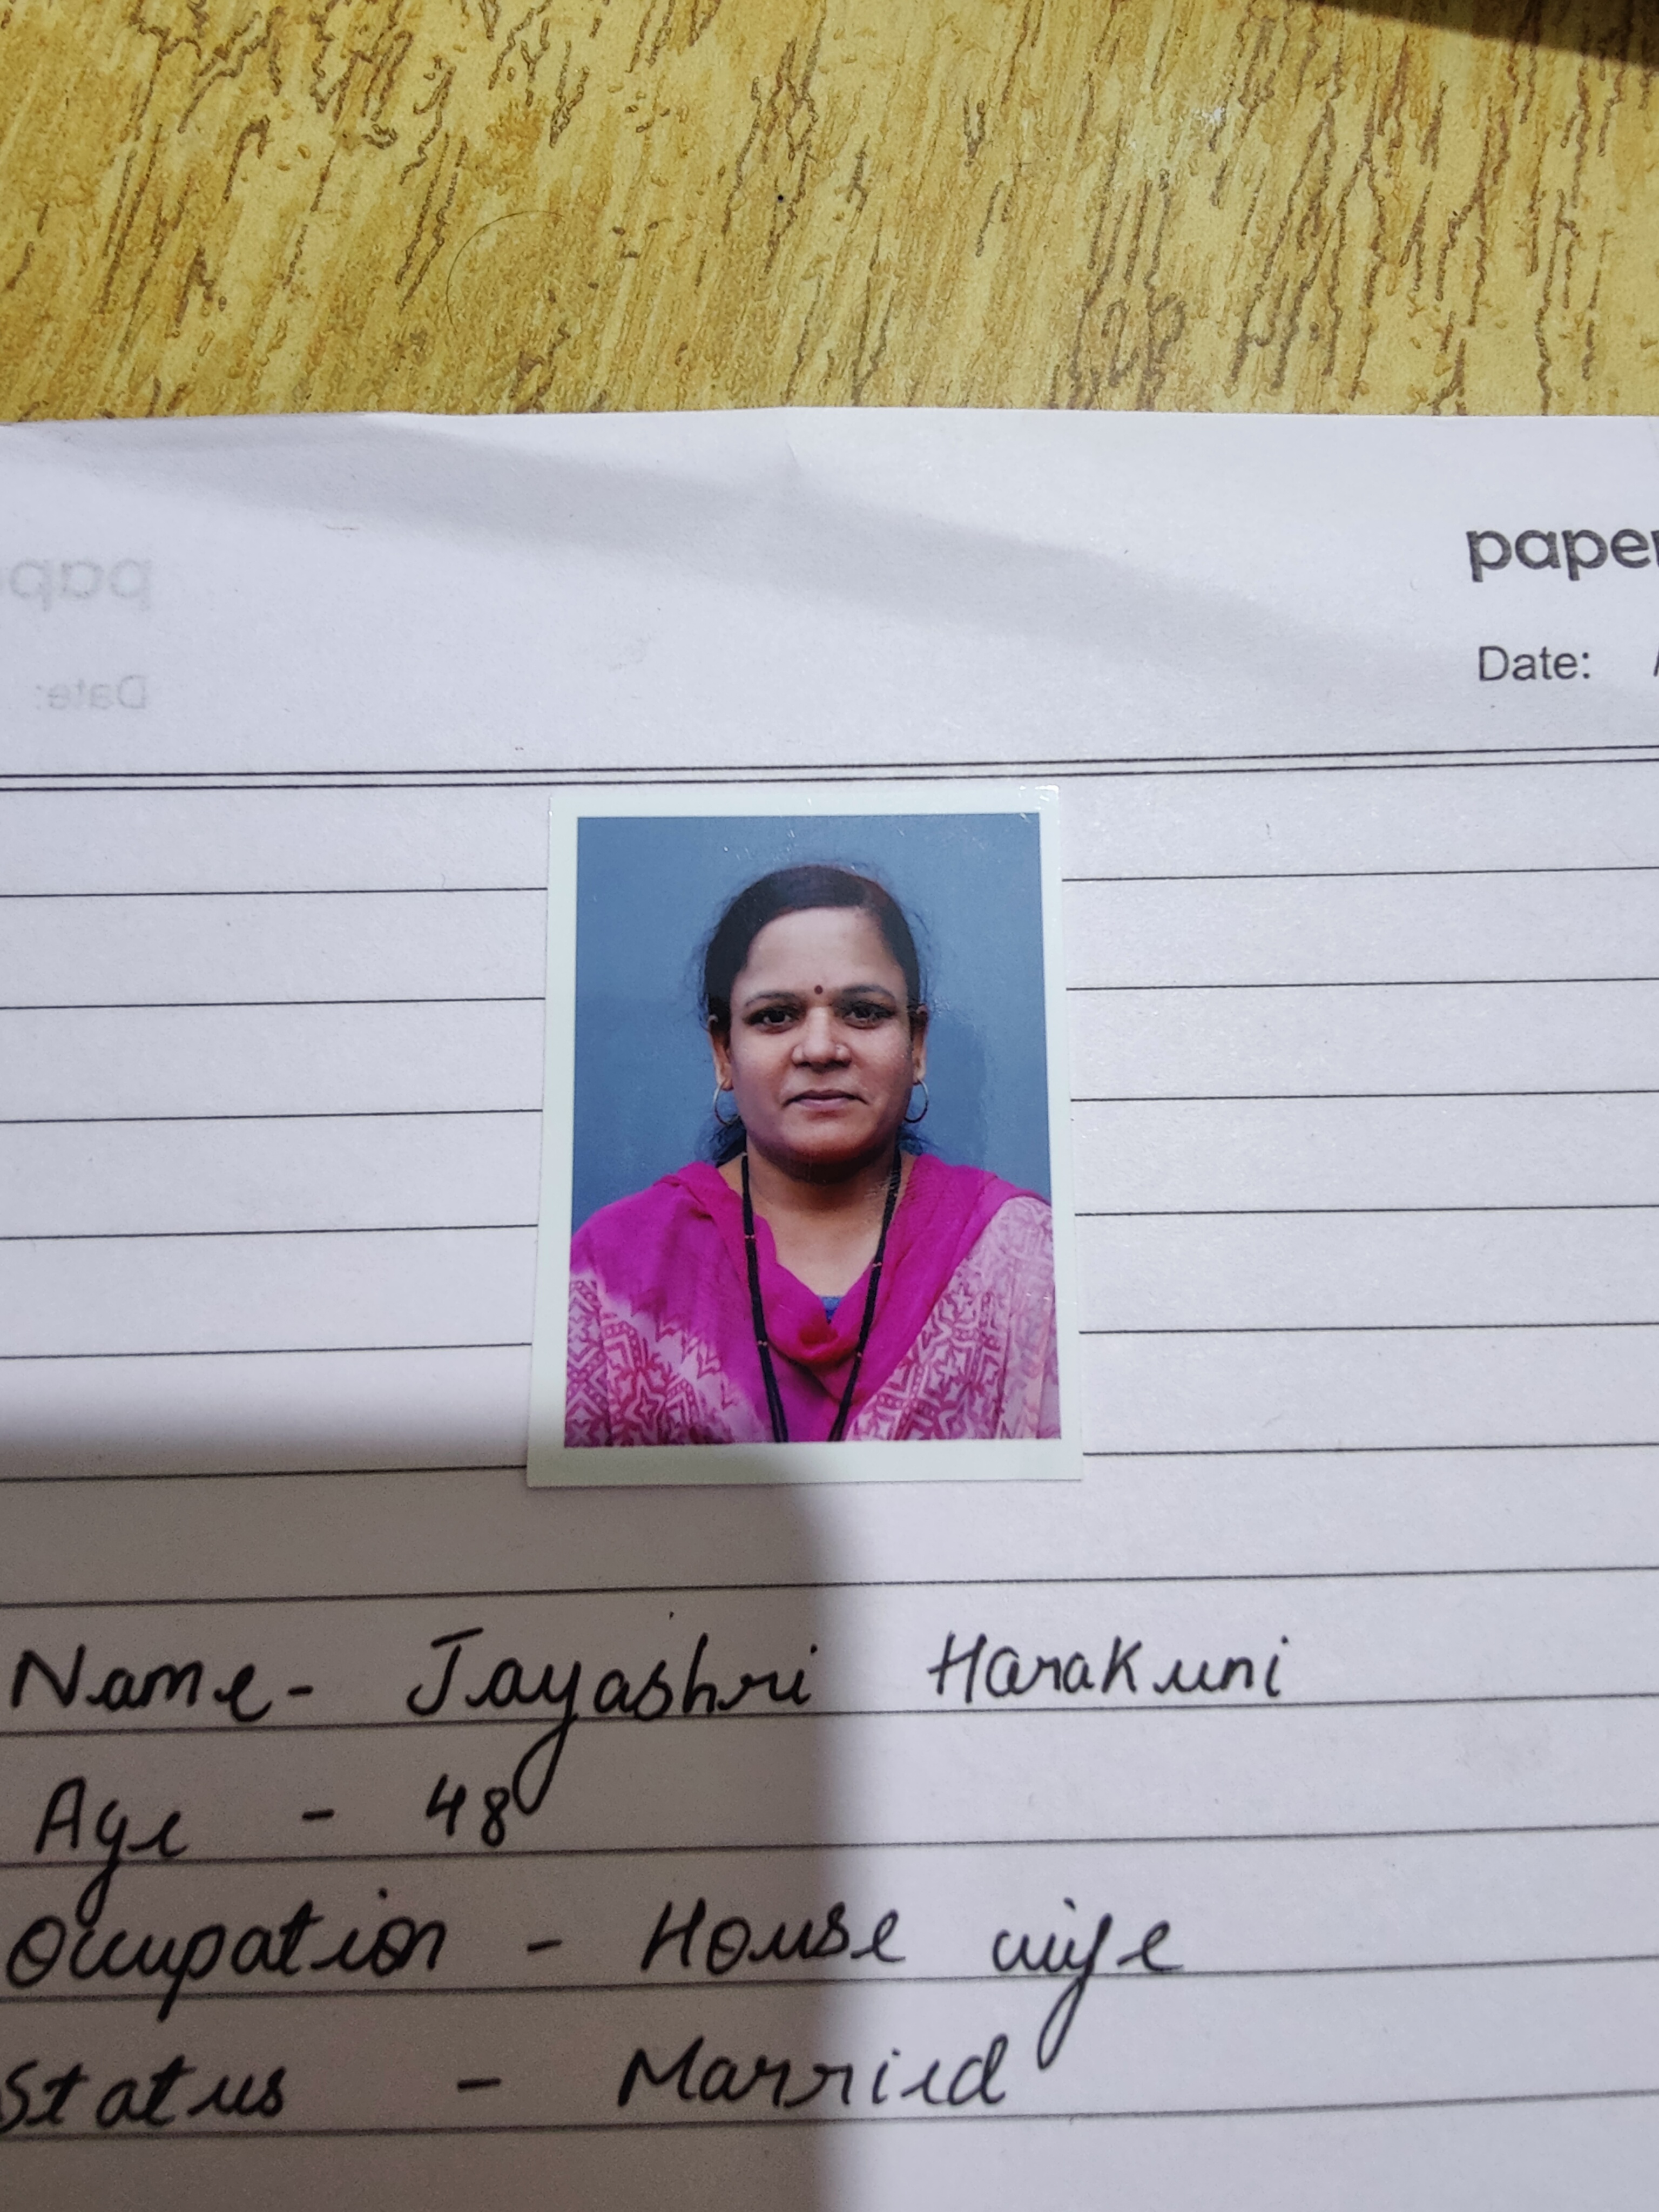 paper
Date: /
Name- Jayashri Harakuni
Age - 48
Occupation - House wife
Status - Married